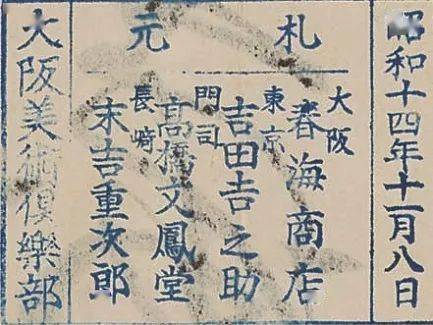 昭和十四年十一月八日
札元
大阪
春海商店
東京
吉田吉之助
門司
高橋文鳳堂
長崎
末吉重次郎
大阪美術倶樂部